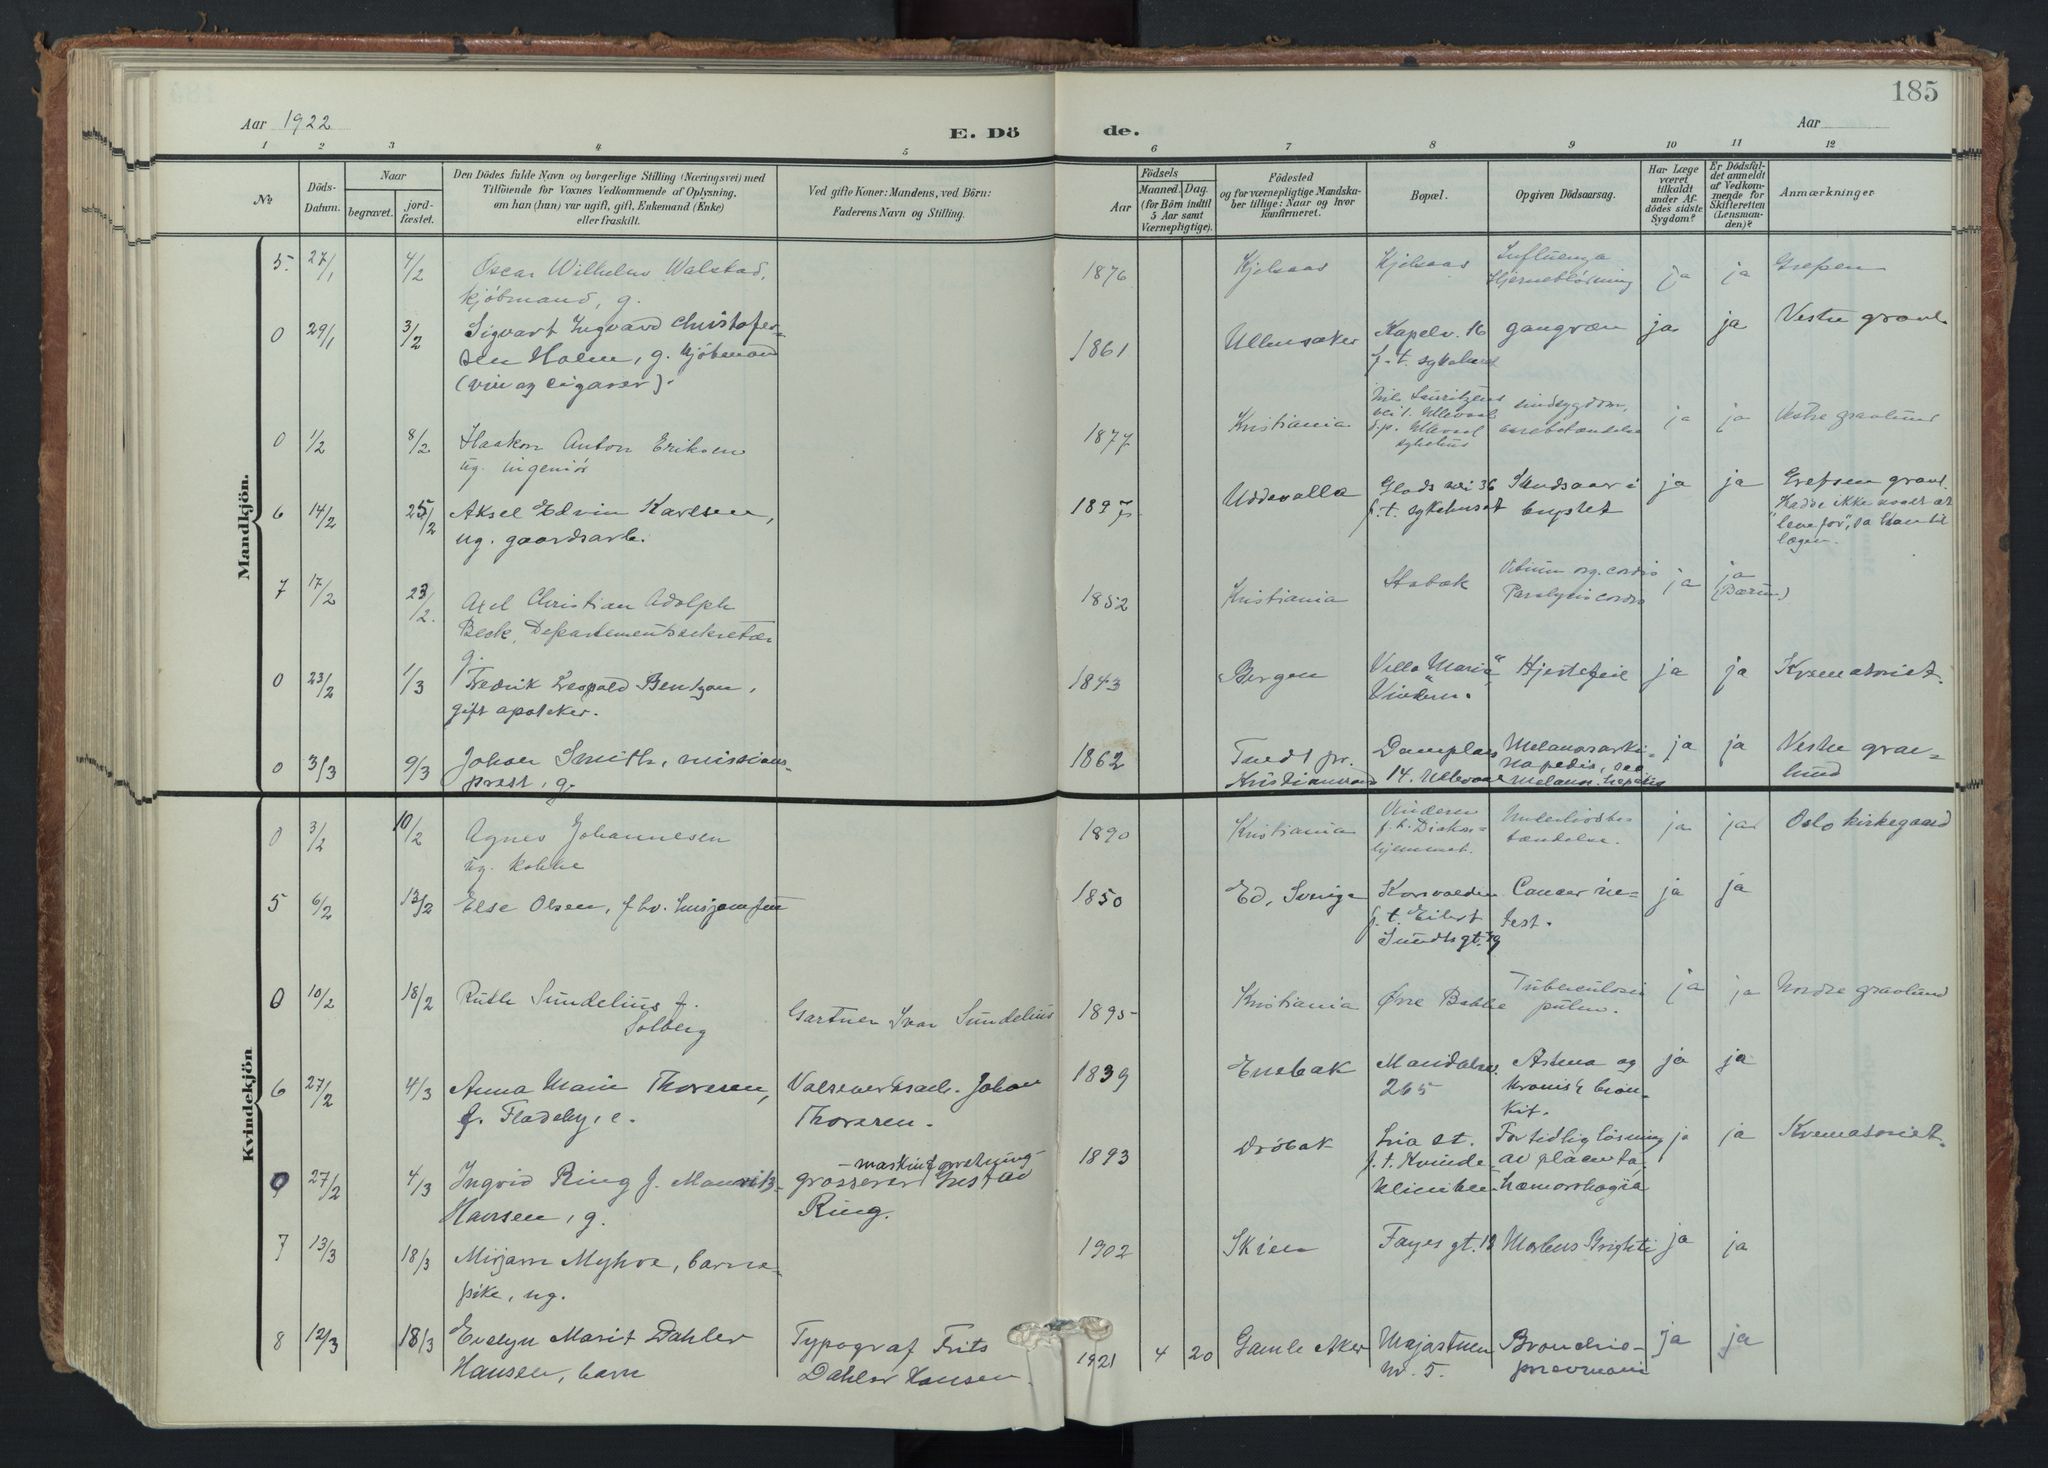 185
Aar 1922
E. Dö
de.
Aar
1 2 3 4 5 6 7 8 9 10 11 12
No
Döds-Datum.
Naar
begravet.
jord-fæstet.
Den Dödes fulde Navn og borgerlige Stilling (Næringsvei) med
Tilföiende for Voxnes Vedkommende af Oplysning,
om han (hun) var ugift, gift, Enkemand (Enke)
eller fraskilt.
Ved gifte Koner: Mandens, ved Börn:
Faderens Navn og Stilling.
Födsels
Aar
Maaned. Dag.
(for Börn indtil
5 Aar samt
Værnepligtige).
Födested
og for værnepligtige Mandska-
ber tillige: Naar og hvor
konfirmeret.
Bopæl.
Opgiven Dödsaarsag.
Har Læge
været
tilkaldt
under Af-
dödes sidste
Sygdom?
Er Dödsfal-
det anmeldt
af Vedkom-
mende for
Skifteretten
(Lensman-
den)?
Anmærkninger
Mandkjön.
5. 27/1 4/2 Oscar Wilhelm Walstad, 1876 Kjelsaas Kjelsaas Influenza ja ja Grefsen
kjöbmand, g. Hjerneblödning
0 29/1 3/2 Sigvart Ingvard Christofer- 1861 Ullensaker Kapelv. 16 gangræn ja ja Vestre gravl.
sen Holm, g. kjöbmand f. t. sykehuset
(vin og cigarer).
0 1/2 8/2 Haakon Anton Eriksen 1877 Kristiania Nils Lauritzens sindsygdom, ja ja Vestre gravlund
ug. ingeniör vei 1. Ullevaal
d.p. Ullevaal
sykehus
6 14/2 25/2 Aksel Edvin Karlsen, 1897 Uddevalla Glads vei 36 Skudsaar i ja ja Grefsen gravl.
ug. gaardsarb. f. t. sykehuset brystet Hadde ikke noget at
"leve for", sa han til
lægen.
7 17/2 23/2. Axel Christian Adolph 1852 Kristiania Stabæk Vitium org. cordis ja ja
Beck, Departementssekretær Paralysis cordis (Bærum)
g.
0 23/2 1/3 Fredrik Leopold Bentzon, 1843 Bergen Villa "Maria" Hjertefeil ja ja Krematoriet.
gift apoteker. Vinderen.
0 3/3 9/3 Johan Smith, missions- 1862 Tvedt pr. Damplass Melanosarko- ja ja Vestre grav-
prest, g. Kristianssand 14. Ullevaal lund
Kvindekjön
0 3/2 10/2 Agnes Johannesen 1890 Kristiania Vinderen Underlivsbe- ja ja Oslo kirkegaard
ug. kokke f. t. Diakon- tændelse.
hjemmet.
5 6/2 13/2 Else Olsen, fhv. husjomfru 1850 Ed, Sverige Korsvolden Cancer in- ja ja
f. t. Eilert test.
Sundts gt. 19
0 10/2 18/2 Ruth Sundelius f. Gartner Ivar Sundelius 1895 Kristiania Øvre Bakke Tuberculosis ja ja Nordre gravlund
Solberg pulm.
6 27/2 4/3 Anna Marie Thoresen, Valseverksarb. Johan 1839 Enebak Maridalsv. Astma og ja ja
f. Fladeby, e. Thoresen. 265 kronisk bron-
kit.
0 27/2 4/3 Ingvid Ring f. Mauritz- -maskinforretning- 1893 Dröbak Fortidlig lösning ja ja Krematoriet.
Hansen, g. grosserer Gustav f. t. Kvinde- av placenta.
Ring. klinikken hæmorrhagia
7 13/3 18/3 Mirjam Myhre, barne- 1902 Skien Fayes gt. 18 Morbus Brighti ja ja
pike, ug.
8 12/3 18/3 Evelyn Marit Dahler Typograf Frits 1921 4 20 Gamle Aker Majorstuen Broncho- ja ja
Hansen, barn Dahler Hansen. nr. 5. pneumoni